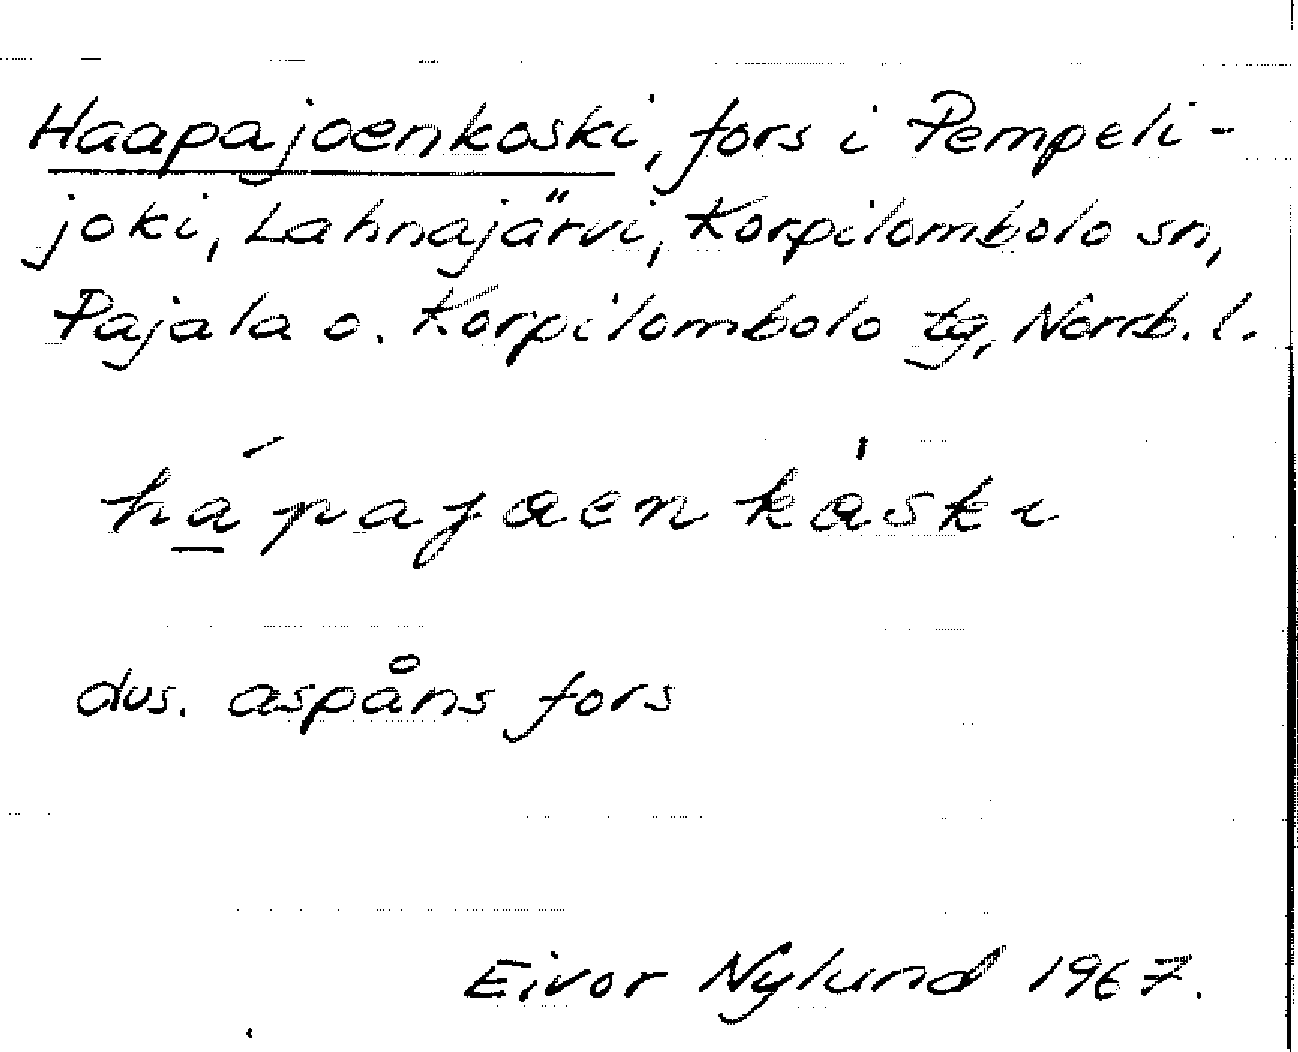 Haapajoenkoski, fors i Pempeli-
joki, Lahnajärvi, Korpilombolo sn,
Pajala o. Korpilombolo tg, Norrb. l.
hapajaenkaski
dvs. aspåns fors
Eivor Nylund 1967.